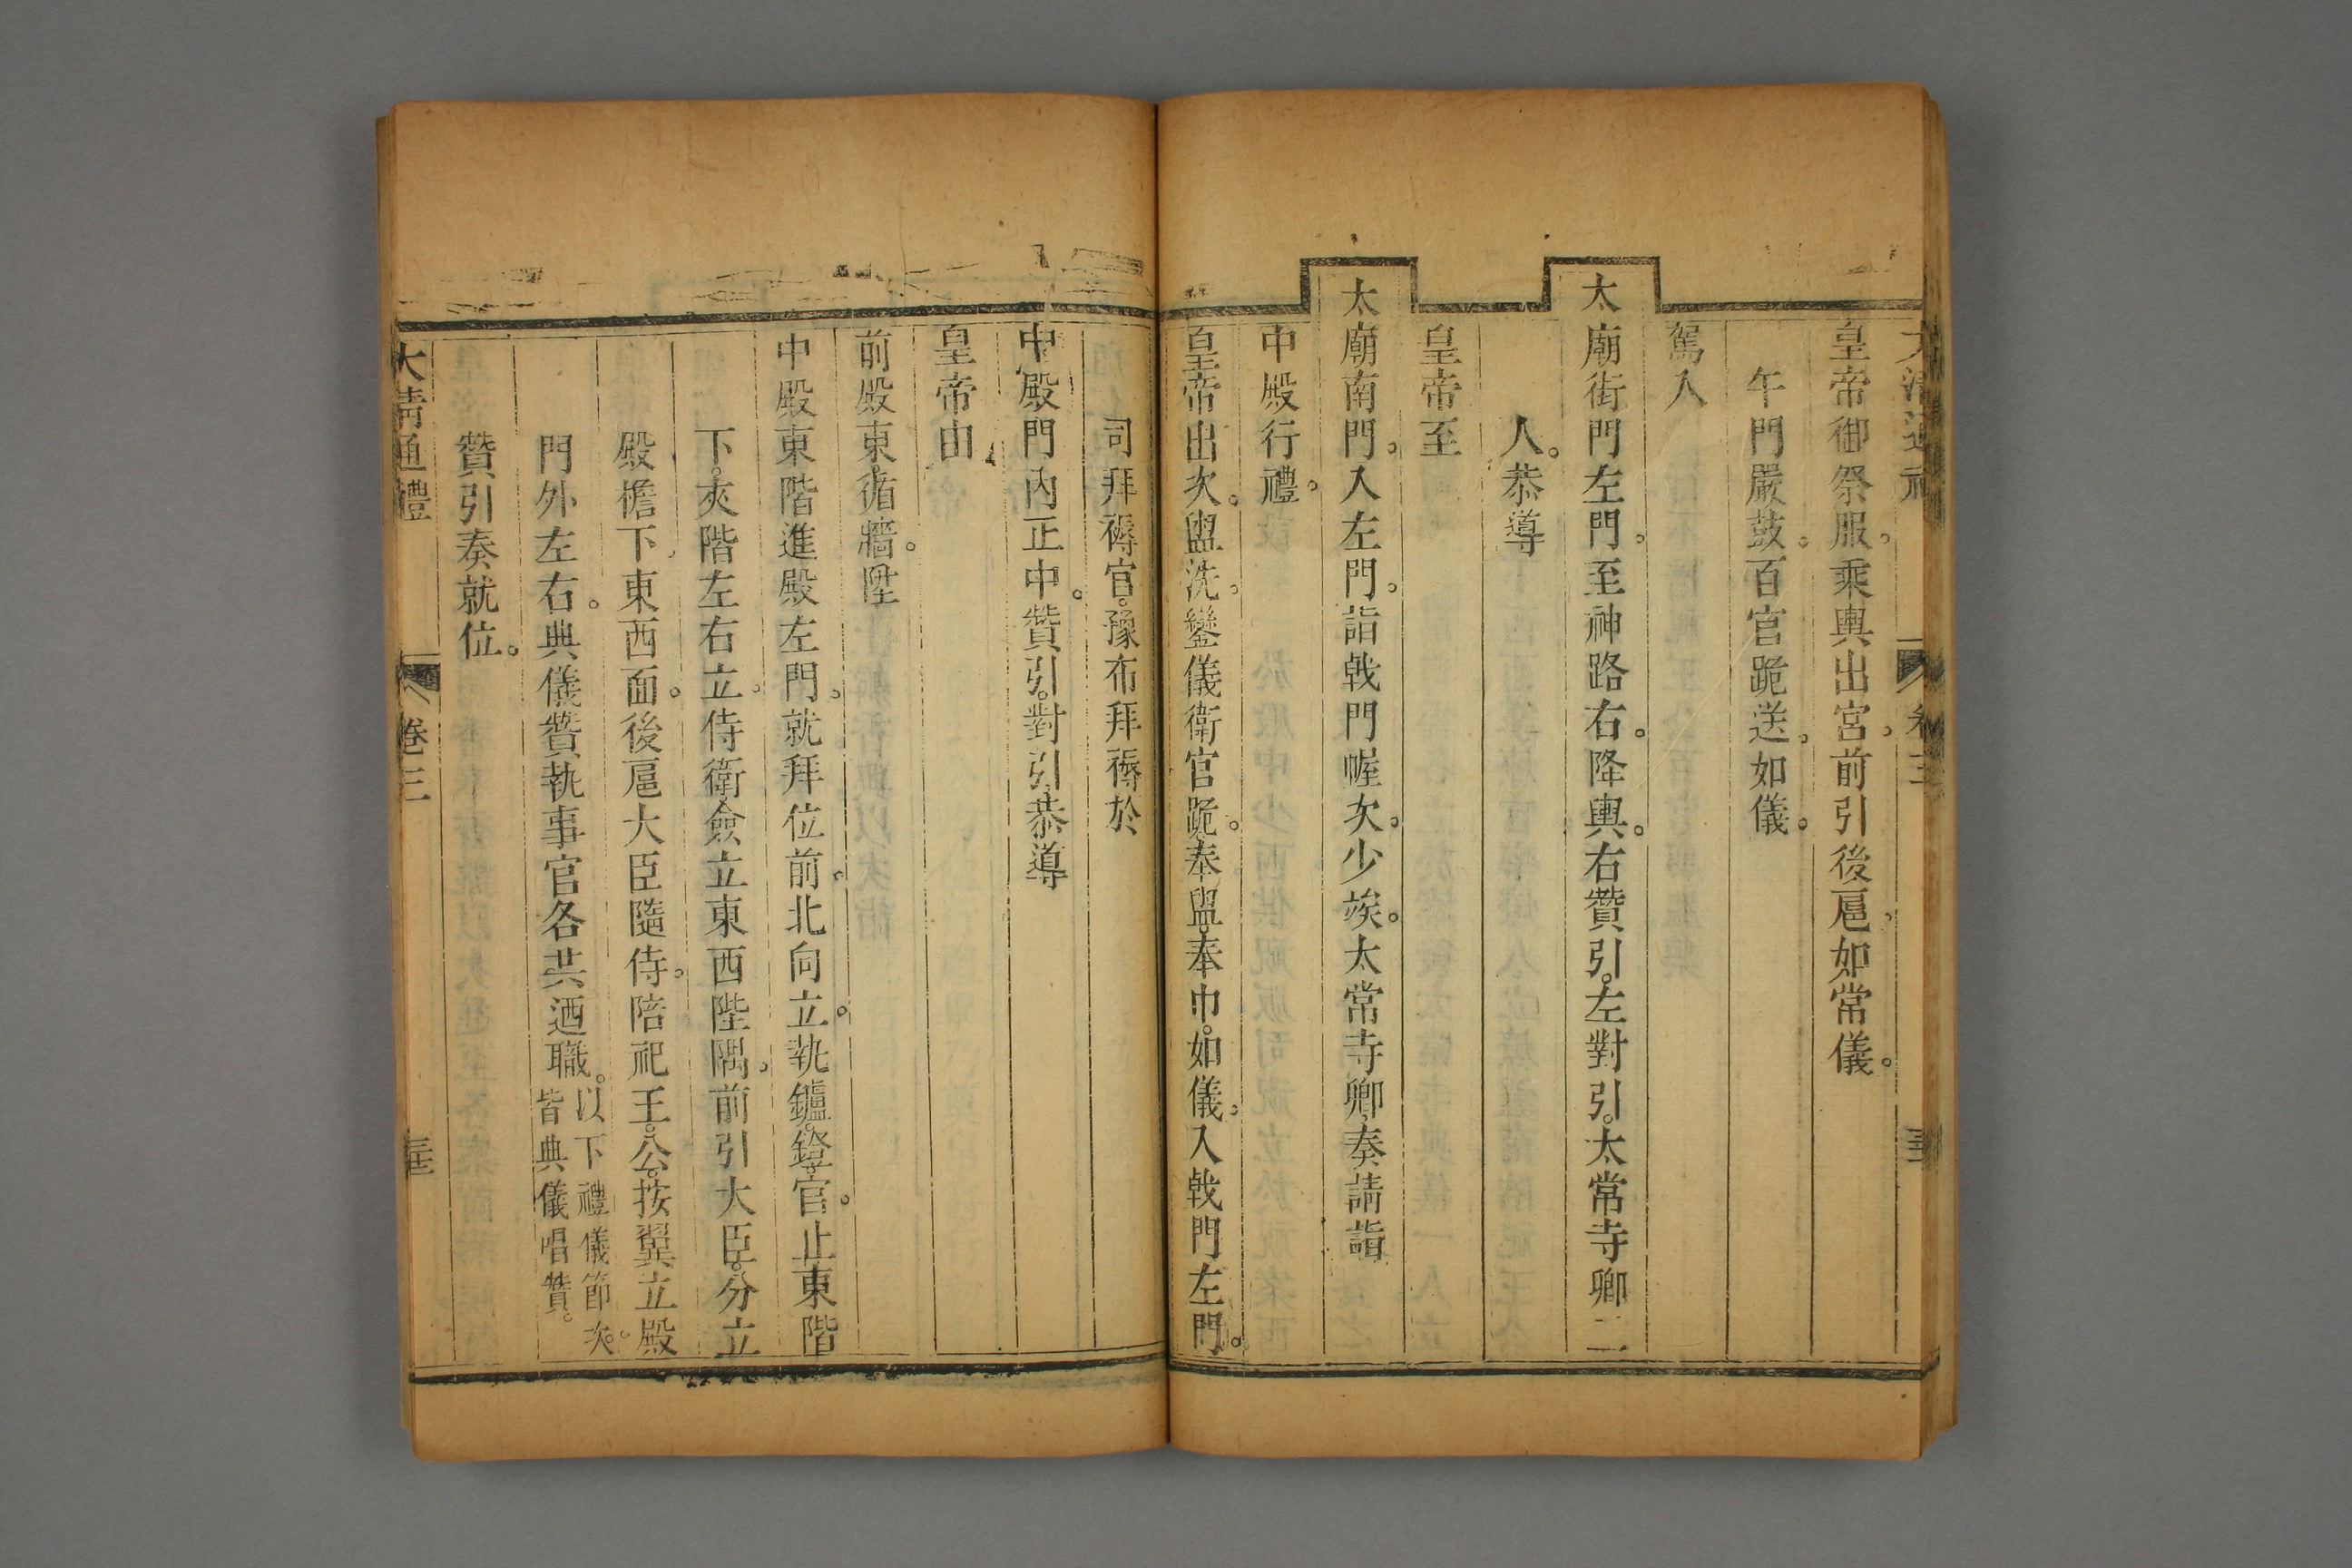 皇帝御祭服。乘輿出宮。前引後扈。如常儀。
午門嚴鼓。百官跪送。如儀。
駕入
太廟街門左門。至神路右。降輿。右贊引。左對引。太常寺卿二
人。恭導
皇帝至
太廟南門。入左門。詣戟門幄次。少竢。太常寺卿奏請詣
中殿行禮。
皇帝出次。盥洗。鑾儀衛官跪。奉盥。奉巾。如儀。入戟門左門。
司拜褥官。豫布拜褥於
中殿門內正中。贊引。對引。恭導
皇帝由
前殿東。循牆。陞
中殿東階。進殿左門。就拜位前。北向立。執鑪。鐙官。止東階
下。夾階左右立。侍衛僉立東西陛隅。前引大臣。分立
殿檐下。東西面。後扈大臣隨侍。陪祀王。公。按翼立殿
門外左右。典儀贊執事官各共迺職。以下禮儀節次。皆典儀唱贊。
贊引奏就位。
大清通禮 卷三